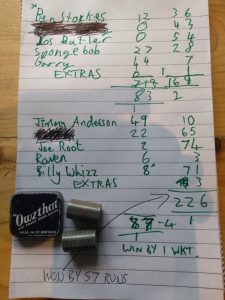 Ben Stokes 12 36
0 43
Jos Butler 0 54
Spongebob 27 28
Garry 44 7
EXTRAS 0 1
83
Jimmy Anderson 49 10
22 65
Joe Root 2 74
Raven 6 3
Billy Whizz 8* 71
EXTRAS 3
226
87-4
WIN BY 1 WKT.
"Owzthat"
WON BY 57 RUNS